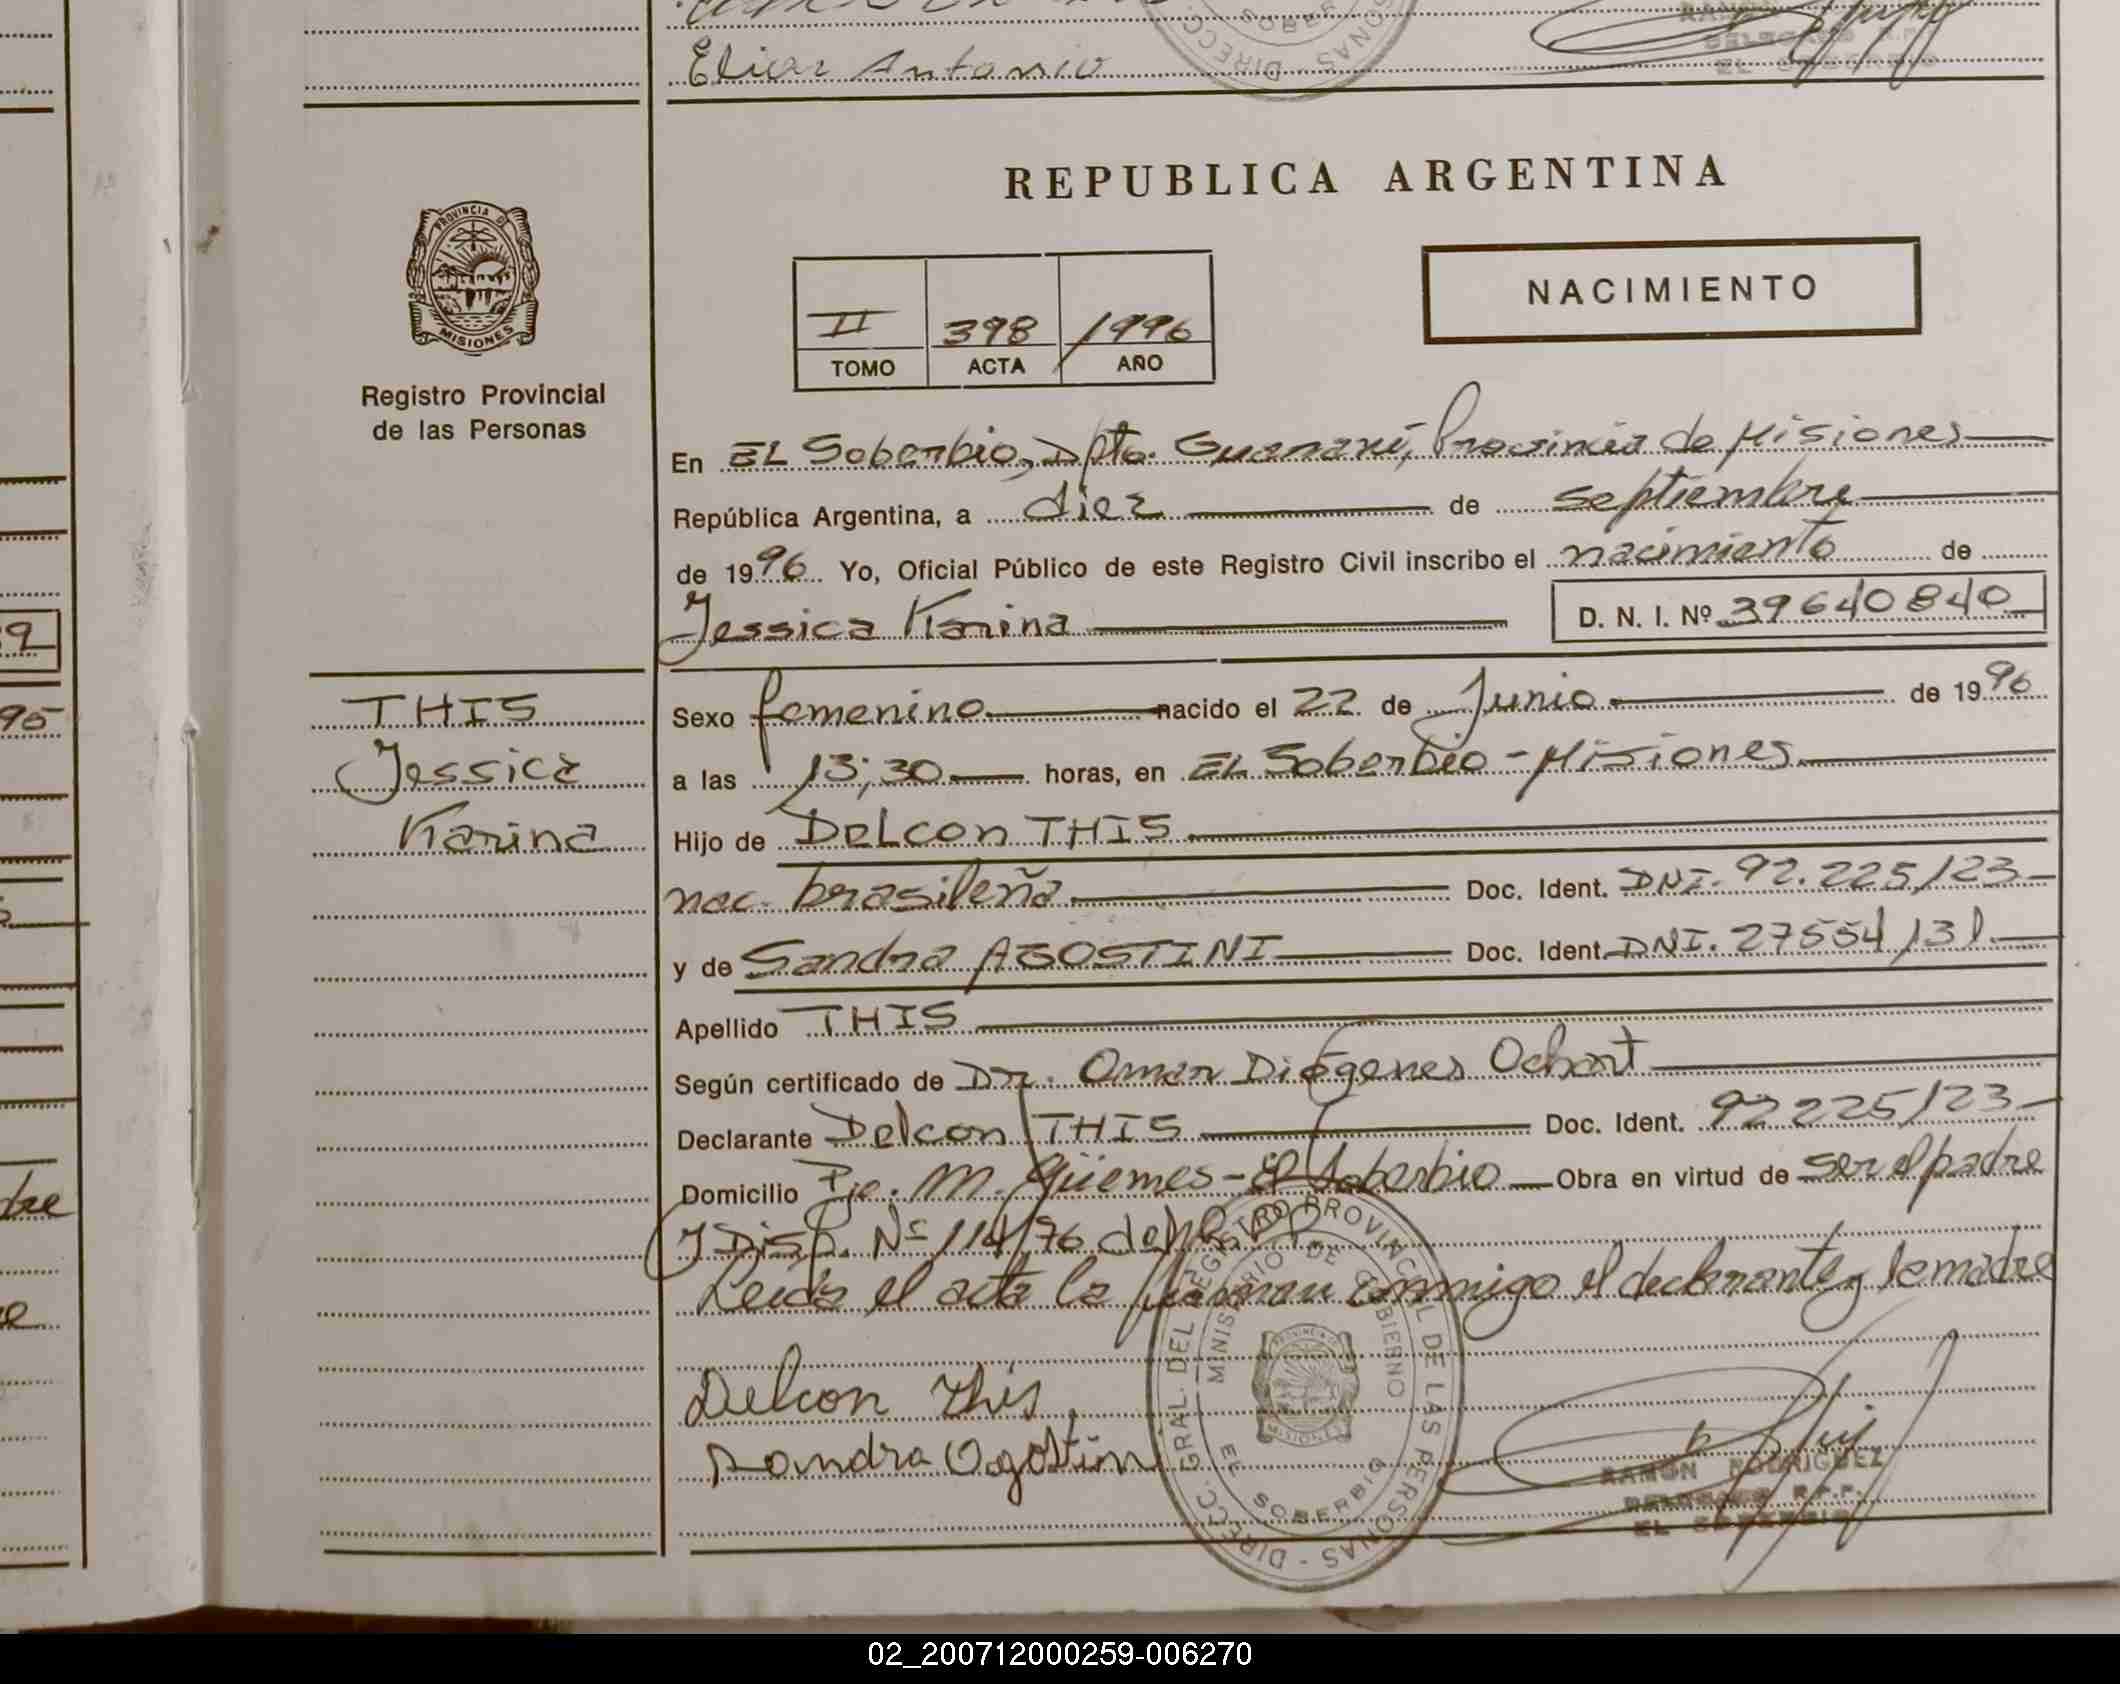 Elias Antonio
REPUBLICA ARGENTINA
PROVINCIA DE
MISIONES
Registro Provincial
de las Personas
II 398 1996
TOMO ACTA AÑO
NACIMIENTO
En EL Soberbio, Dpto. Guaraní, Provincia de Misiones
República Argentina, a diez de septiembre
de 1996 Yo, Oficial Público de este Registro Civil inscribo el nacimiento de
Jessica Karina D. N. I. Nº 39640840
THIS
Jessica
Karina
Sexo femenino nacido el 22 de Junio de 1996
a las 13;30 horas, en EL Soberbio - Misiones
Hijo de DeLcon THIS
nac. brasileña Doc. Ident. DNI. 92.225,123
y de Sandra AGOSTINI Doc. Ident. DNI. 27554131
Apellido THIS
Según certificado de Dr. Omar Diógenes Ochart
Declarante Delcon THIS Doc. Ident. 92225123
Domicilio Pje. M. Güemes - El Soberbio Obra en virtud de ser el padre
y Disp. Nº 114/76 del
Leída el acta la firman conmigo el declarante y la madre
Delcon This
Sandra Agostini
DIRECC. GRAL. DEL REGISTRO PROVINCIAL DE LAS PERSONAS
MINISTERIO DE GOBIERNO
EL SOBERBIO
MISIONES
RAMON RODRIGUEZ
DELEGADO R.P.P.
EL SOBERBIO
02_200712000259-006270